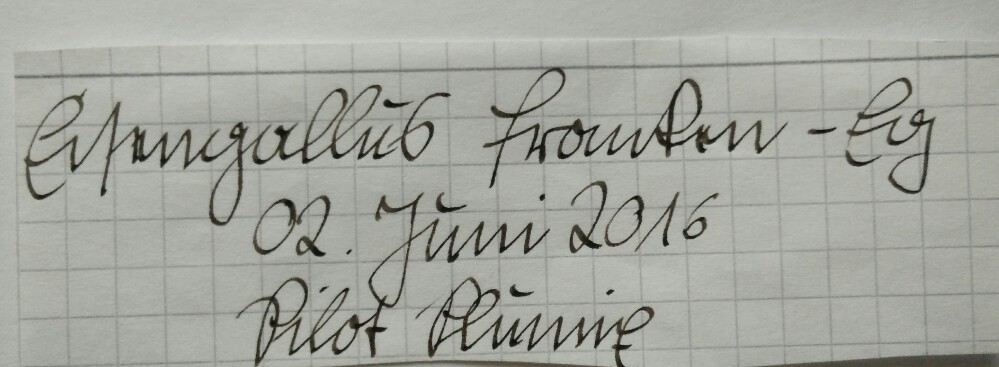 Eisengallus Franken-Eg
02. Juni 2016
Pilot Plumix